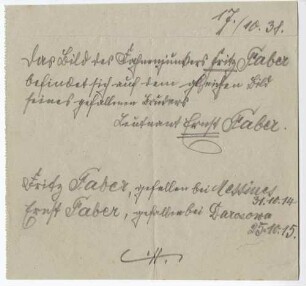 17./10.38.
Das Bild des Fahnenjunkers Fritz Faber
befindet sich auf dem gleichen Bild
seines gefallenen Bruders
Leutnant Ernst Faber.
Fritz Faber, gefallen bei Messines
31.10.14.
Ernst Faber, gefallen bei Darozowa
25.10.15.